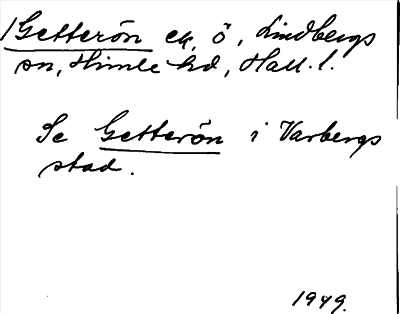 /Getterön ek, ö, Lindbergs
sn, Himle hd, Hall. l.
Se Getterön i Varbergs
stad.
1949.